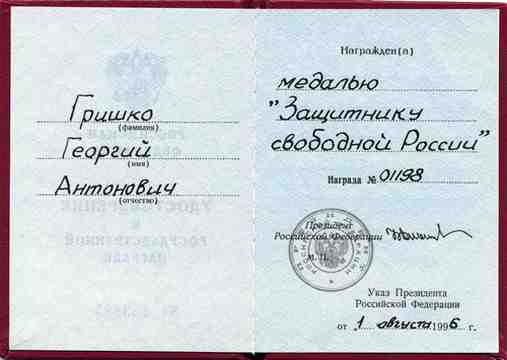 Гришко
(фамилия)
Георгий
(имя)
Антонович
(отчество)
Награжден(а)
медалью
"Защитнику
свободной России"
Награда № 01198
Президент
Российской Федерации
М. П.
Указ Президента
Российской Федерации
от 1 августа 1996 г.